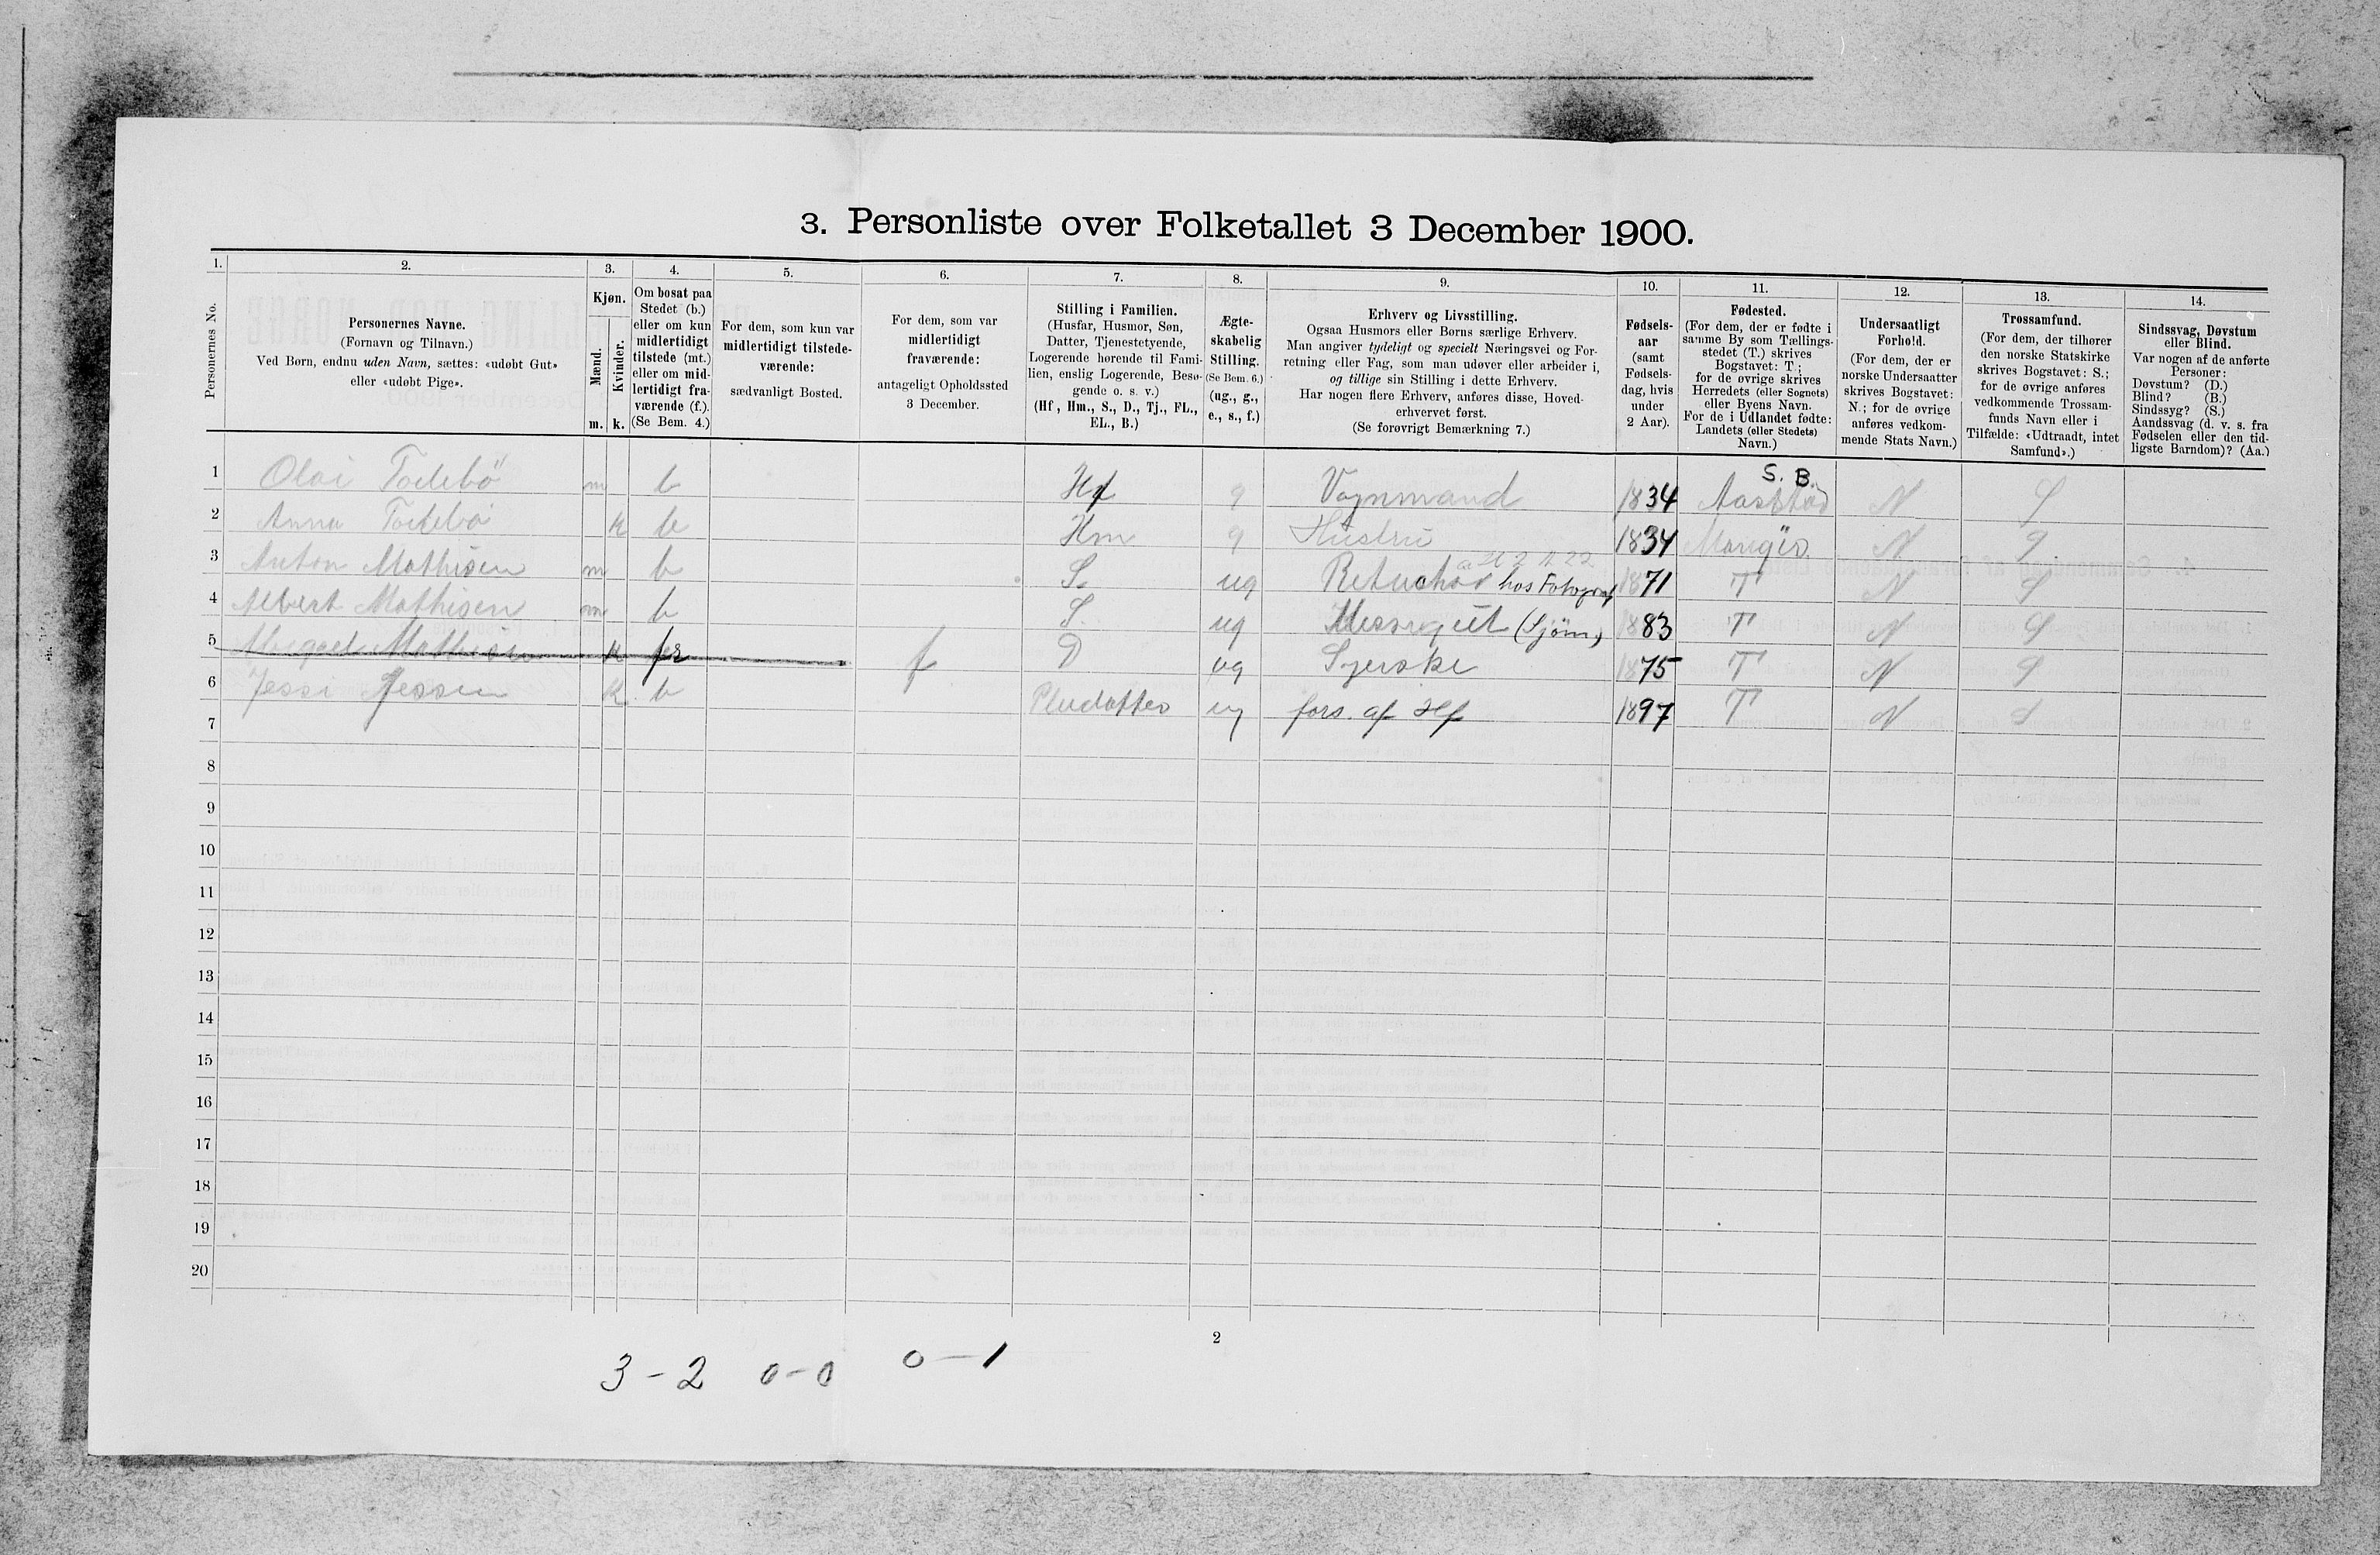 3. Personliste over Folketallet 3 December 1900.
1. 2. 3. 4. 5. 6. 7. 8. 9. 10. 11. 12. 13. 14.
Personernes No.
Personernes Navne.
(Fornavn og Tilnavn.)
Ved Børn, endnu uden Navn, sættes: «udøbt Gut»
eller «udøbt Pige».
Kjøn.
Mænd.
Kvinder.
m. k.
Om bosat paa
Stedet (b.)
eller om kun
midlertidigt
tilstede (mt.)
eller om mid-
lertidigt fra-
værende (f.).
(Se Bem. 4.)
For dem, som kun var
midlertidigt tilstede-
værende:
sædvanligt Bosted.
For dem, som var
midlertidigt
fraværende:
antageligt Opholdssted
3 December.
Stilling i Familien.
(Husfar, Husmor, Søn,
Datter, Tjenestetyende,
Logerende hørende til Fami-
lien, enslig Logerende, Besø-
gende o. s. v.)
(Hf, Hm., S., D., Tj., FL.,
EL., B.)
Ægte-
skabelig
Stilling.
(Se Bem. 6.)
(ug., g.,
e., s., f.)
Erhverv og Livsstilling.
Ogsaa Husmors eller Børns særlige Erhverv.
Man angiver tydeligt og specielt Næringsvei og For-
retning eller Fag, som man udøver eller arbeider i,
og tillige sin Stilling i dette Erhverv.
Har nogen flere Erhverv, anføres disse, Hoved-
erhvervet først.
(Se forøvrigt Bemærkning 7.)
Fødsels-
aar
(samt
Fødsels-
dag, hvis
under
2 Aar).
Fødested.
(For dem, der er fødte i
samme By som Tællings-
stedet (T.) skrives
Bogstavet: T.;
for de øvrige skrives
Herredets (eller Sognets)
eller Byens Navn.
For de i Udlandet fødte:
Landets (eller Stedets)
Navn.)
Undersaatligt
Forhold.
(For dem, der er
norske Undersaatter
skrives Bogstavet:
N.; for de øvrige
anføres vedkom-
mende Stats Navn.)
Trossamfund.
(For dem, der tilhører
den norske Statskirke
skrives Bogstavet: S.;
for de øvrige anføres
vedkommende Trossam-
funds Navn eller i
Tilfælde: «Udtraadt, intet
Samfund».)
Sindssvag, Døvstum
eller Blind.
Var nogen af de anførte
Personer:
Døvstum? (D.)
Blind? (B.)
Sindssyg? (S.)
Aandssvag (d. v. s. fra
Fødselen eller den tid-
ligste Barndom)? (Aa.)
S. B.
1 Olai m b Hf g Vognmand 1834 N S
2 Anna k b Hm g Hustru 1834 Mangër N S
3 Anton Mathisen m b S. ug Retuchör hos Fotograf 1871 T N S
4 Albert Mathisen m b S. ug (Sjöm) 1883 T N S
5 Mathisen k f D ug Syerske 1875 T N S
6 Jessi Jessen k b Pleidatter ug fors. af Hf 1897 T N S
7
8
9
10
11
12
13
14
15
16
17
18
19
20
2
3 - 2 0 - 0 0 - 1